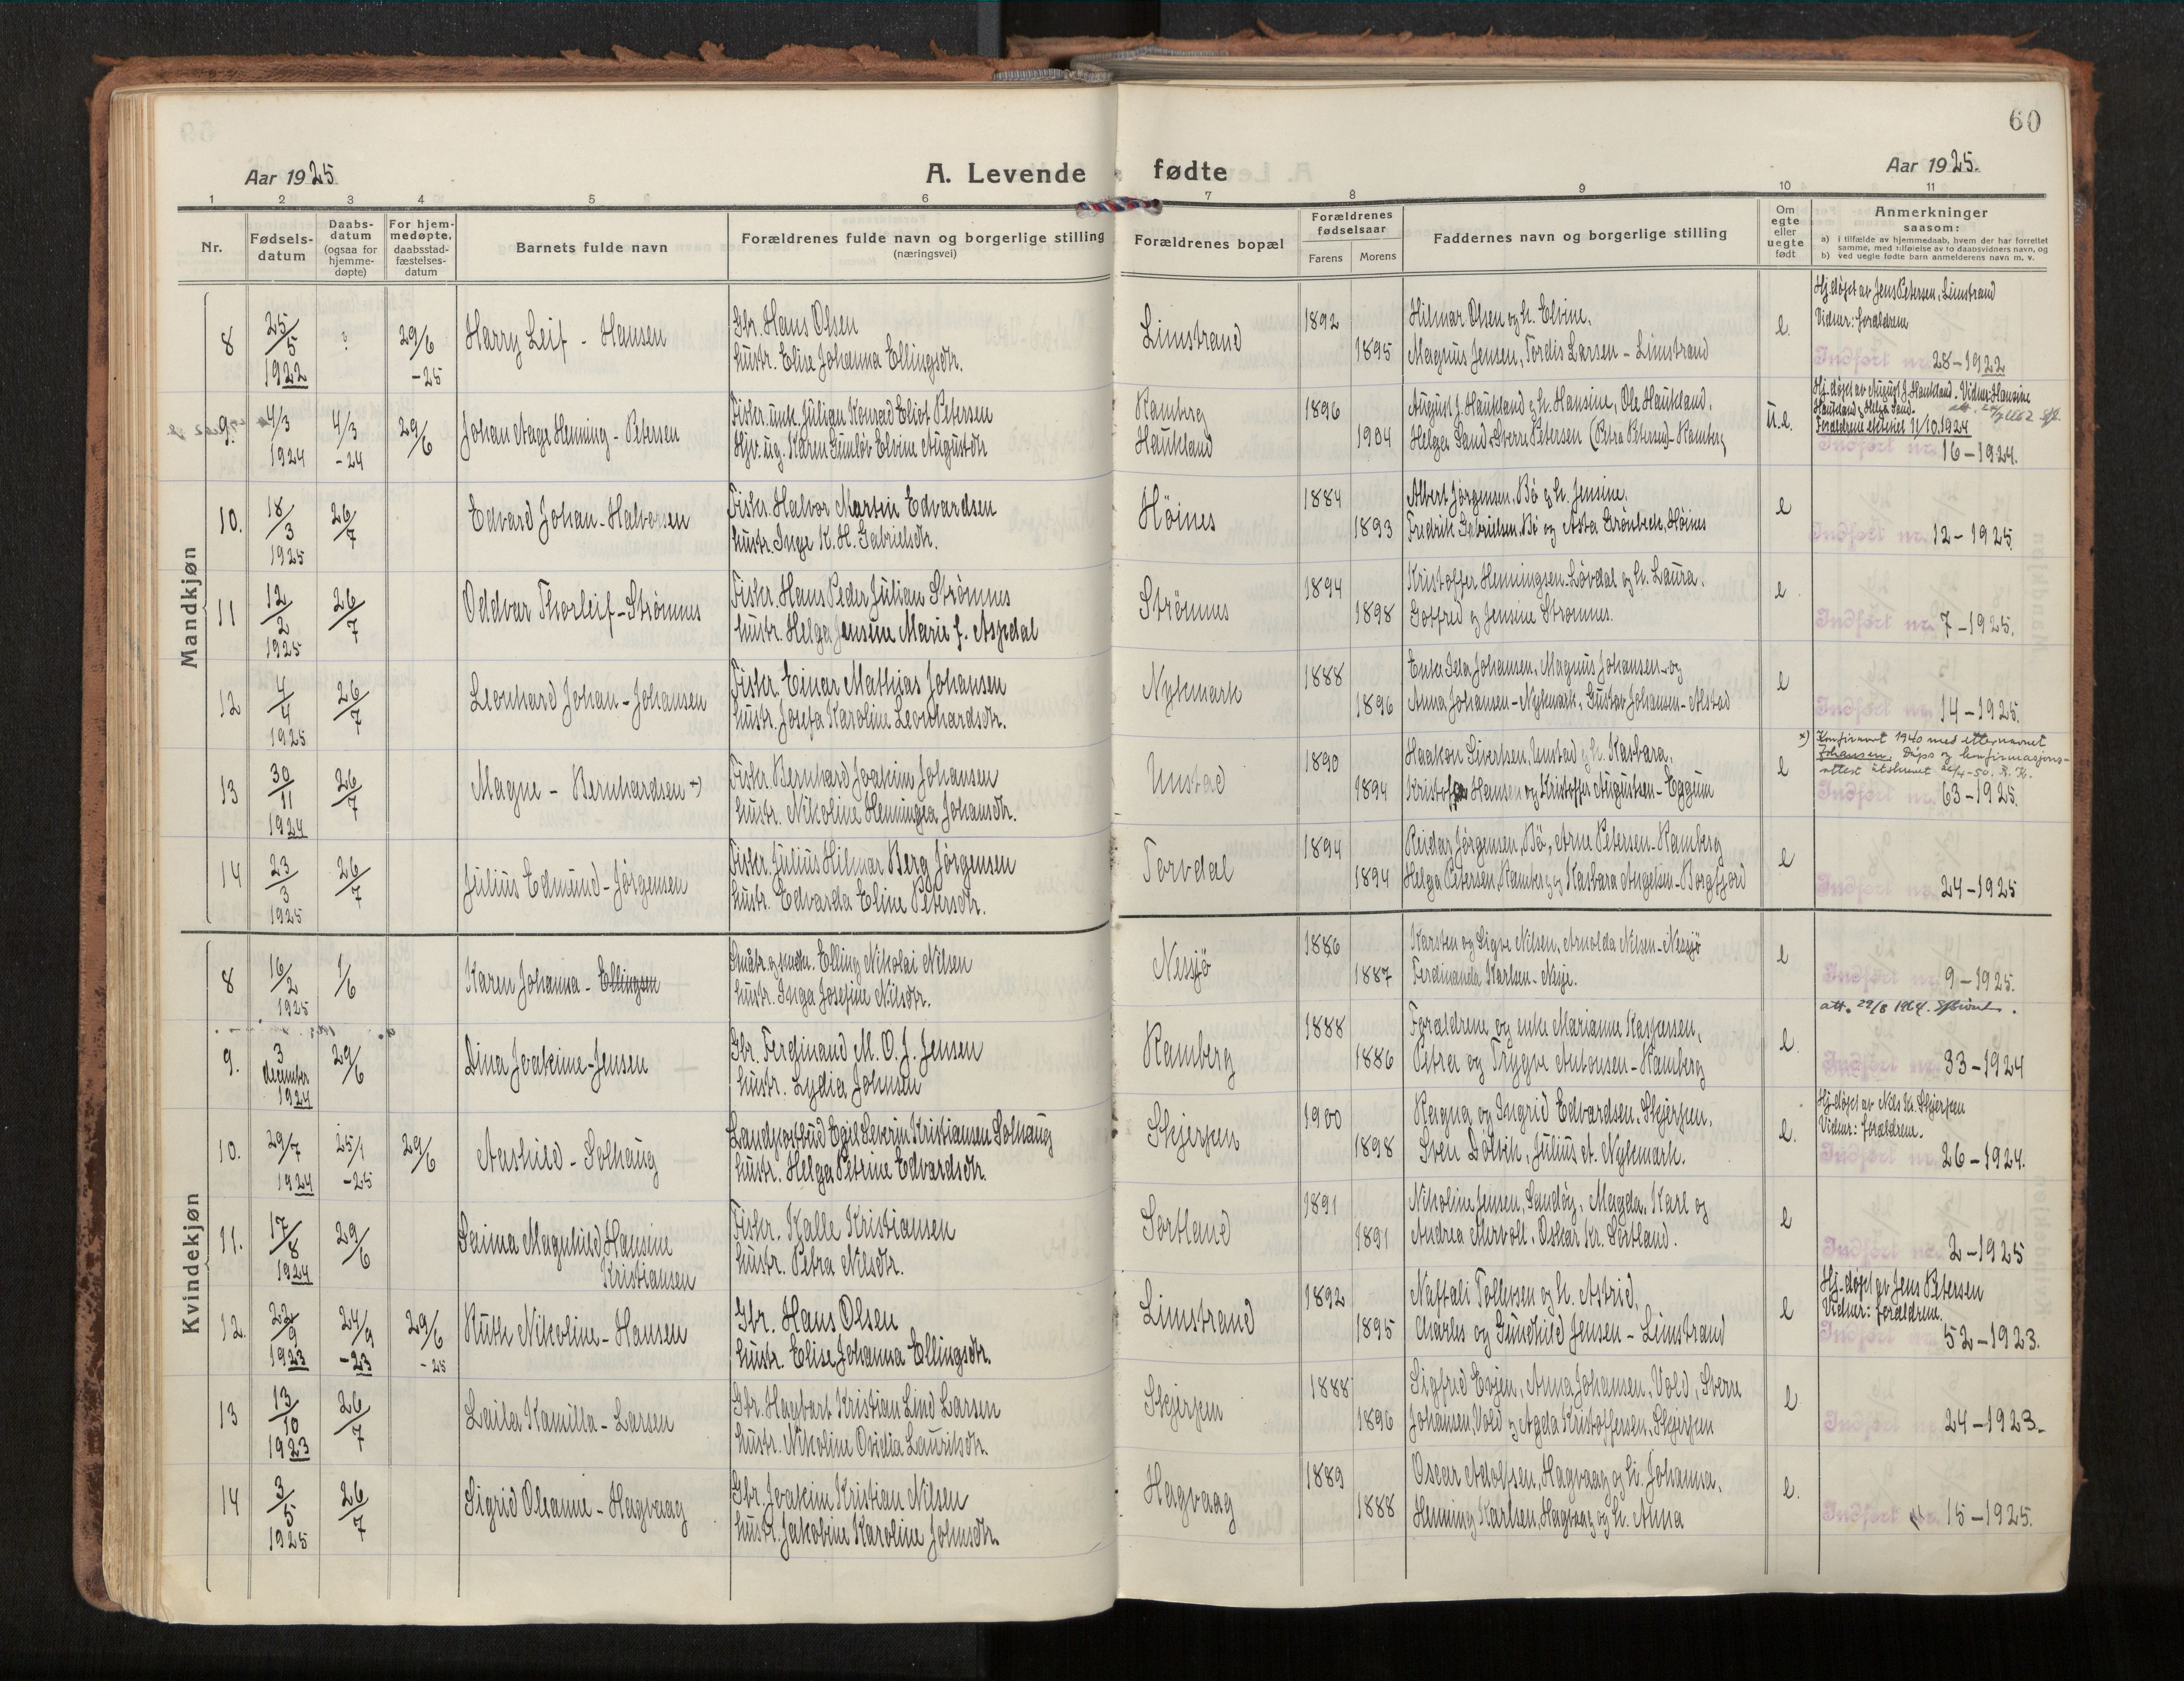 60
Aar 1925.
A. Levende fødte
Aar 1925.
1 2 3 4 5 6 7 8 9 10 11
Nr.
Fødsels-
datum
Daabs-
datum
(ogsaa for
hjemme-
døpte)
For hjem-
medøpte,
daabsstad-
fæstelses-
datum
Barnets fulde navn
Forældrenes fulde navn og borgerlige stilling
(næringsvei)
Forældrenes bopæl
Forældrenes
fødselsaar
Farens Morens
Faddernes navn og borgerlige stilling
Om
egte
eller
uegte
født
Anmerkninger
saasom:
a) i tilfælde av hjemmedaab, hvem der har forrettet
samme, med tilføielse av to daabsvidners navn, og
b) ved uegte fødte barn anmelderens navn m. v.
Mandkjøn
8 25/5 1922 29/6 -25 Harry Leif - Hansen
Gbr. Hans Olsen
hustr. Elise Johanna Ellingsdtr.
Limstrand 1892 1895
Hilmar Olsen og h. Elvine.
Magnus Jensen, Tordis Larsen - Limstrand
e.
Hj. døpt av Jens Petersen, Limstrand
Vidner: forældrene
Indført nr. 28-1922
9. 4/3 1924 4/3 -24 29/6 Johan Aage Henning - Petersen
Fisker. unk. Julian Konrad Eliot Petersen
Hjv. ug. Karen Gunløv Elvine Augustdtr
Ramberg
Haukland
1896 1904
August J. Haukland og h. Hansine, Ole Haukland,
Helga Sand, Sverre Petersen (Petra Petersen) - Ramberg
u.e.
Hj. døpt av August J. Haukland. Vidner: Hansine
Haukland og Helga Sand.
Forældrene ektevies 11/10.1924
Indført nr. 16-1924.
10. 18/3 1925 26/7 Edvard Johan - Halvorsen
Fisker. Halvor Martin Edvardsen
hustr. Inga K. H. Gabrielsdtr.
Höines 1884 1893
Albert Jørgensen, Bö og h. Jensine.
Fredrik Gabrielsen, Bö og Asta Grønbech, Höines
e
Indført nr. 12-1925
11 12/2 1925 26/7 Oddvar Thorleif - Strømnes
Fisker. Hans Peder Julian Strømnes
hustr. Helga Jensine Marie f. Aspdal
Strömnes 1894 1898
Kristoffer Henningsen Løvdal og h. Laura.
Gotfred og Jensine Strømnes.
e.
Indført nr. 7-1925.
12 4/4 1925 26/7 Leonhard Johan - Johansen
Fisker. Einar Mathias Johansen
hustr. Josefa Karoline Leonhardsdtr.
Nykmark 1888 1896
Enke Ida Johansen, Magnus Johansen og
Anna Johansen - Nykmark, Gustav Johansen - Alstad
e
Indført nr. 14-1925.
13 30/11 1924 26/7 Magne - Bernhardsen x)
Fisker. Bernhard Joakim Johansen
hustr. Nikoline Henningea Johansdtr.
Unstad 1890 1894
Haakon Sivertsen, Unstad og h. Barbara.
Hansen og Kristoffer Augustsen - Eggum
e
x) Konfirmert 1940 med etternavnet
Johansen. Dåps og konfirmasjons-
attest utskrevet 26/4-50.
Indført nr. 63-1925.
14 23/3 1925 26/7 Julius Edmund - Jørgensen
Fisker. Julius Hilmar Berg Jørgensen
hustr. Edvarda Eline Petersdtr.
Torvdal 1894 1894
Reidar Jørgensen, Bö, Arne Petersen - Ramberg
Helga Petersen, Ramberg og Barbara Angelsen - Borgfjord
e
Indført nr. 24-1925
Kvindekjøn
8 16/2 1925 1/6 Karen Johanna - Ellingsen
Elling Nikolai Nilsen
hustr. Inga Josefine Nilsdtr.
Nesjö 1886 1887
Karsten og Signe Nilsen, Arnolda Nilsen - Nessjö
Ferdinanda Karlsen - Nesje.
e
Indført nr. 9-1925.
9. 3 december 1924 29/6 Dina Joakime - Jensen
Gbr. Ferdinand M. O. J. Jensen
hustr. Lydia Johnsen
Ramberg 1888 1886
Forældrene og enke Marianne Kaspersen,
Petra og Trygve Antonsen - Ramberg
e.
att. 29/8 1964.
Indført nr. 33-1924
10. 29/7 1924 25/1 -25 29/6 Aashild - Solhaug
Landpostbud Egil Severin Kristiansen Solhaug
hustr. Helga Petrine Edvardsdtr.
Skjerpen 1900 1898
Ragna og Ingrid Edvardsen, Skjerpen.
Sven Dalvik, Julius A. Nykmark.
e.
Hj. døpt av Nils Kr. Skjerpen
Vidner: forældrene.
Indført nr. 26-1924.
11. 17/8 1924 29/6 Saima Magnhild Hansine
Kristiansen
Fisker. Kalle Kristiansen
hustr. Petra Nilsdtr.
Sortland 1891 1891
Nikoline Jensen, Sandöy, Magda, Karl og
Andrea Mervoll, Oskar Kr. Sortland.
e
Indført nr. 2-1925
12. 22/9 1923 24/9 -23 29/6 -25 Ruth Nikoline - Hansen
Gbr. Hans Olsen
hustr. Elise Johanna Ellingsdtr.
Limstrand 1892 1895
Naftali Tollefsen og h. Astrid,
Charles og Gundhild Jensen - Limstrand
e
Hj. døpt av Jens Petersen
Vidner: forældrene.
Indført nr. 52-1923.
13 13/10 1923 26/7 Laila Kamilla - Larsen
Gbr. Hagbart Kristian Lind Larsen
hustr. Nikoline Ovidia Lauritsdtr.
Skjerpen 1888 1896
Sigfrid Evjen, Anna Johansen, Vold, Sverre
Johansen, Vold og Agda Kristoffersen, Skjerpen
e
Indført nr. 24-1923.
14 3/5 1925 26/7 Sigrid Oleanne - Hagvaag
Gbr. Joakim Kristian Nilsen
hustr. Jakobine Karoline Johnsdtr.
Hagvaag 1889 1888
Oscar Adolfsen, Hagvaag og h. Johanna.
Henning Karlsen, Hagvaag og h. Anna
e.
Indført nr. 15-1925.